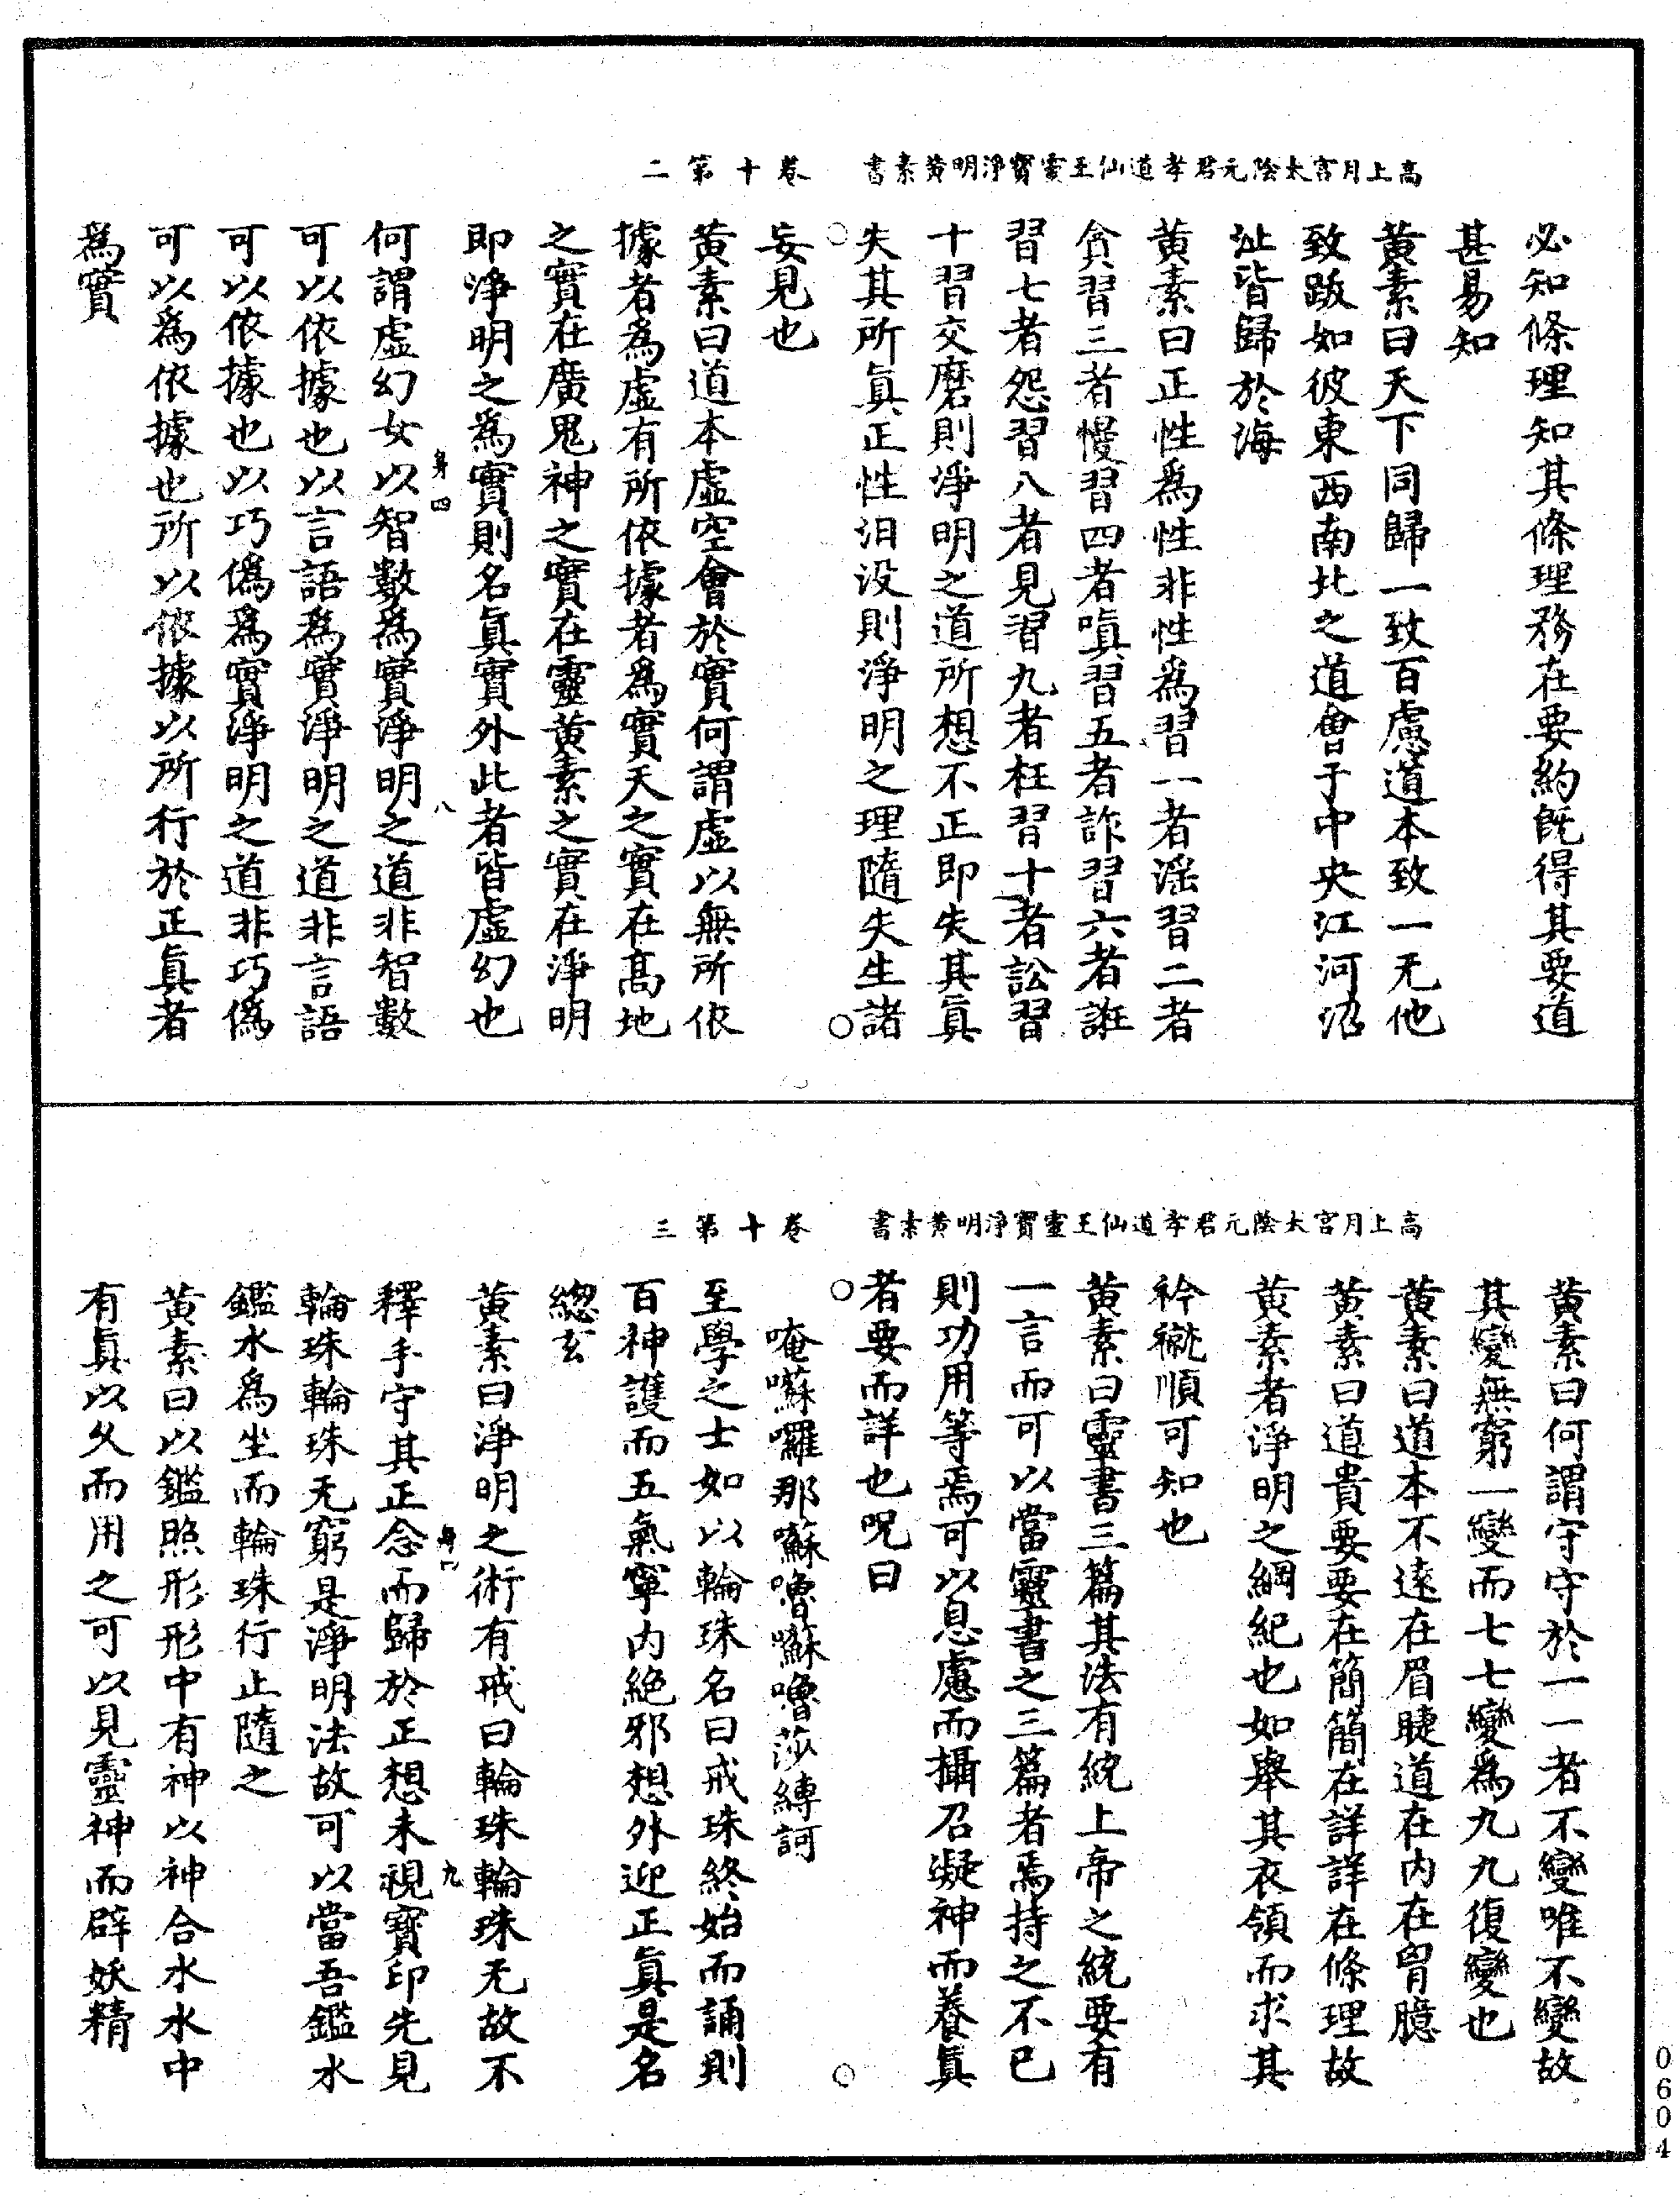 高上月宮太陰元君孝道仙王靈寶淨明黃素書　卷十第二
必知條理知其條理務在要約旣得其要道
甚易知
黃素曰天下同歸一致百慮道本致一无他
致跋如彼東西南北之道會于中央江河沼
沚皆歸於海
黃素曰正性爲性非性爲習一者淫習二者
貪習三者慢習四者嗔習五者詐習六者誑
習七者怨習八者見習九者枉習十者訟習
十習交磨則淨明之道所想不正即失其眞
失其所眞正性汩没則淨明之理隨失生諸
妄見也
黃素曰道本虛空會於實何謂虛以無所依
據者爲虛有所依據者爲實天之實在高地
之實在廣鬼神之實在靈黃素之實在淨明
即淨明之爲實則名眞實外此者皆虛幻也
身四　八
何謂虛幻女以智數爲實淨明之道非智數
可以依據也以言語爲實淨明之道非言語
可以依據也以巧僞爲實淨明之道非巧僞
可以爲依據也所以依據以所行於正眞者
爲實
高上月宮太陰元君孝道仙王靈寶淨明黃素書　卷十第三
黃素曰何謂守守於一一者不變唯不變故
其變無窮一變而七七變爲九九復變也
黃素曰道本不遠在眉睫道在内在胷臆
黃素曰道貴要要在簡簡在詳詳在條理故
黃素者淨明之綱紀也如舉其衣領而求其
衿襳順可知也
黃素曰靈書三篇其法有統上帝之統要有
一言而可以當靈書之三篇者焉持之不已
則功用等焉可以息慮而攝召凝神而養眞
者要而詳也呪曰
唵囌囉那囌嚕囌嚕莎縛訶
至學之士如以輪珠名曰戒珠終始而誦則
百神護而五氣寧内絶邪想外迎正眞是名
緫玄
黃素曰淨明之術有戒曰輪珠輪珠无故不
身一　九
釋手守其正念而歸於正想未視寶印先見
輪珠輪珠无窮是淨明法故可以當吾鑑水
鑑水爲坐而輪珠行止隨之
黃素曰以鑑照形形中有神以神合水水中
有眞以久而用之可以見靈神而辟妖精
0604